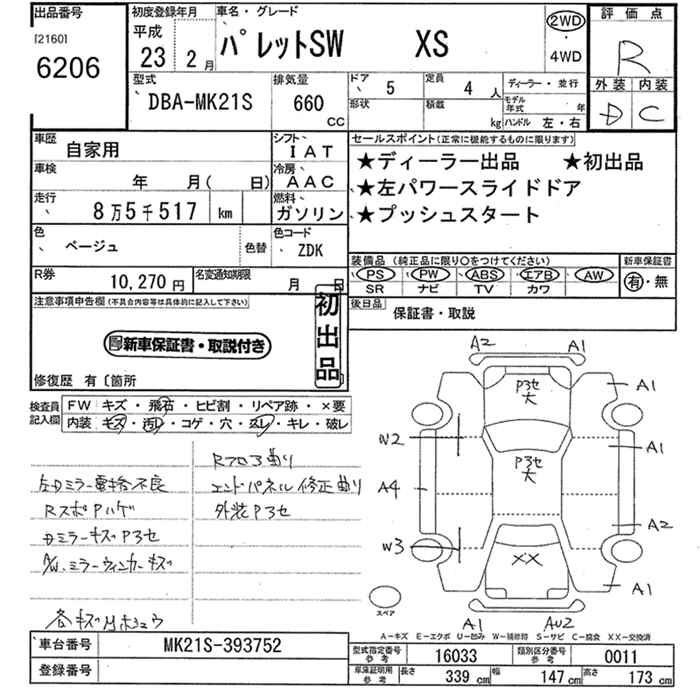 出品番号
[2160]
6206
初度登録年月
平成
23 2月
車名・グレード
パレットSW XS
2WD
・
4WD
評価点
R
外装 内装
D C
型式
DBA-MK21S
排気量
660
CC
ドア
5
定員
4人
形状
積載
kg
ディーラー・並行
モデル年式 年
ハンドル 左・右
車歴
自家用
シフト
IAT
車検
年 月( 日)
冷房
AAC
走行
8万5千517 km
燃料
ガソリン
色
ベージュ
色替
色コード
ZDK
R券
10,270円
名変通知期限
月 日
セールスポイント(正常に機能するものに限ります)
★ディーラー出品 ★初出品
★左パワースライドドア
★プッシュスタート
装備品(純正品に限り○をつけてください)
新車保証書
PS PW ABS エアB AW
SR ナビ TV カワ
有・無
後日品
保証書・取説
注意事項申告欄(不具合内容等は具体的に記入して下さい)
初出品
新車保証書・取説付き
修復歴 有〔箇所
検査員記入欄
FW キズ・飛石・ヒビ割・リペア跡・×要
内装 キズ・汚レ・コゲ・穴・スレ・キレ・破レ
Rフロア曲り
左Dミラー電格不良
エンドパネル修正曲り
RスポPハゲ
外装P3セ
DミラーキズP3セ
A/W.ミラーウィンカーキズ
A2 A1
P3セ
大
A1
W2
A1
P3セ
大
A4
A2
W3
XX
A1
スペア
A1 AU2
A-キズ E-エクボ U-凹み W-補修跡 S-サビ C-腐食 XX-交換済
車台番号
MK21S-393752
登録番号
型式指定番号
参考
16033
類別区分番号
参考
0011
車庫証明用
参考
長さ
339 cm
幅
147 cm
高さ
173 cm